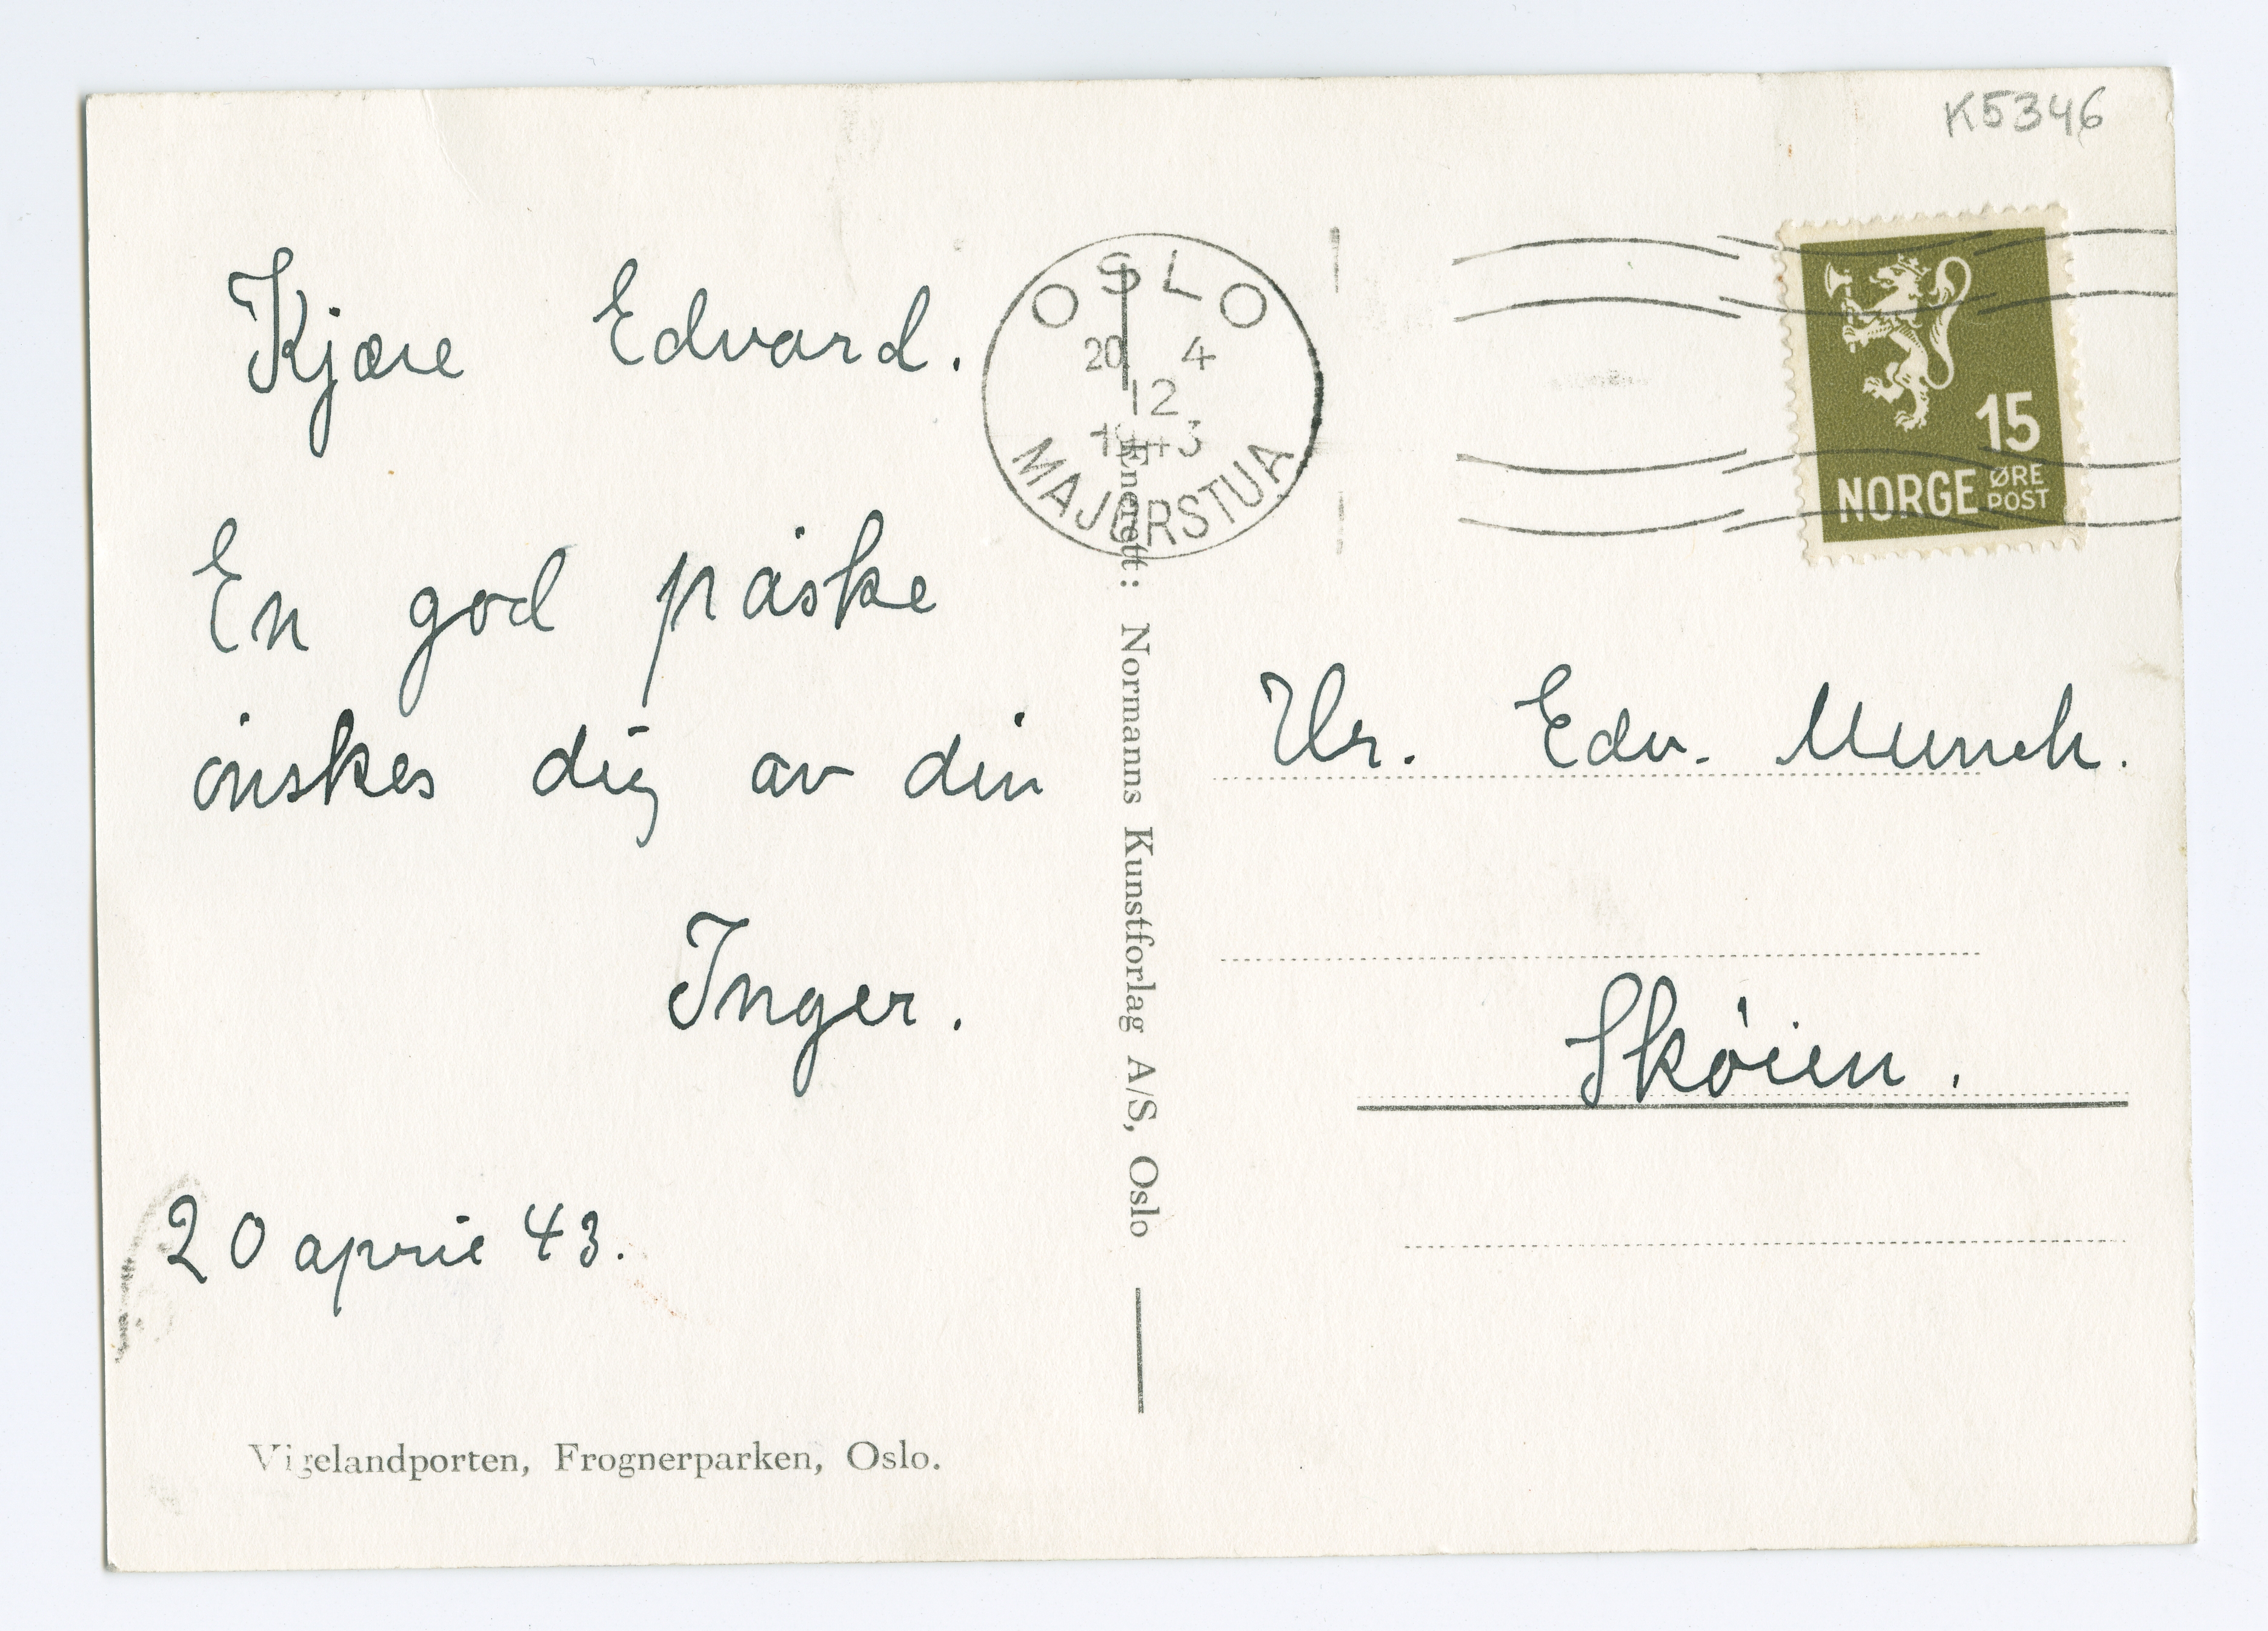 K5346
Kjære Edvard.
En god påske
ønskes dig av din
Inger.
20 april 43.
Vigelandporten, Frognerparken, Oslo.
OSLO
20 4
12
1943
MAJORSTUA
Enerett: Normanns Kunstforlag A/S, Oslo
15
NORGE ØRE
POST
Hr. Edv. Munch.
Skøien.